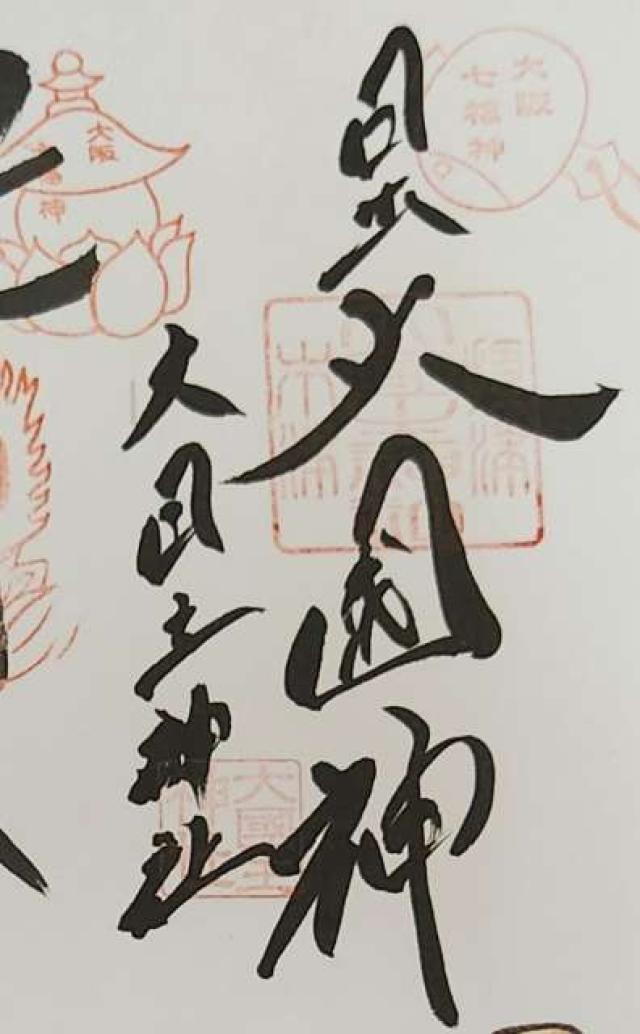 大阪
七福神
日出大国神
大国主神社
大國主
神社
大阪
七福神